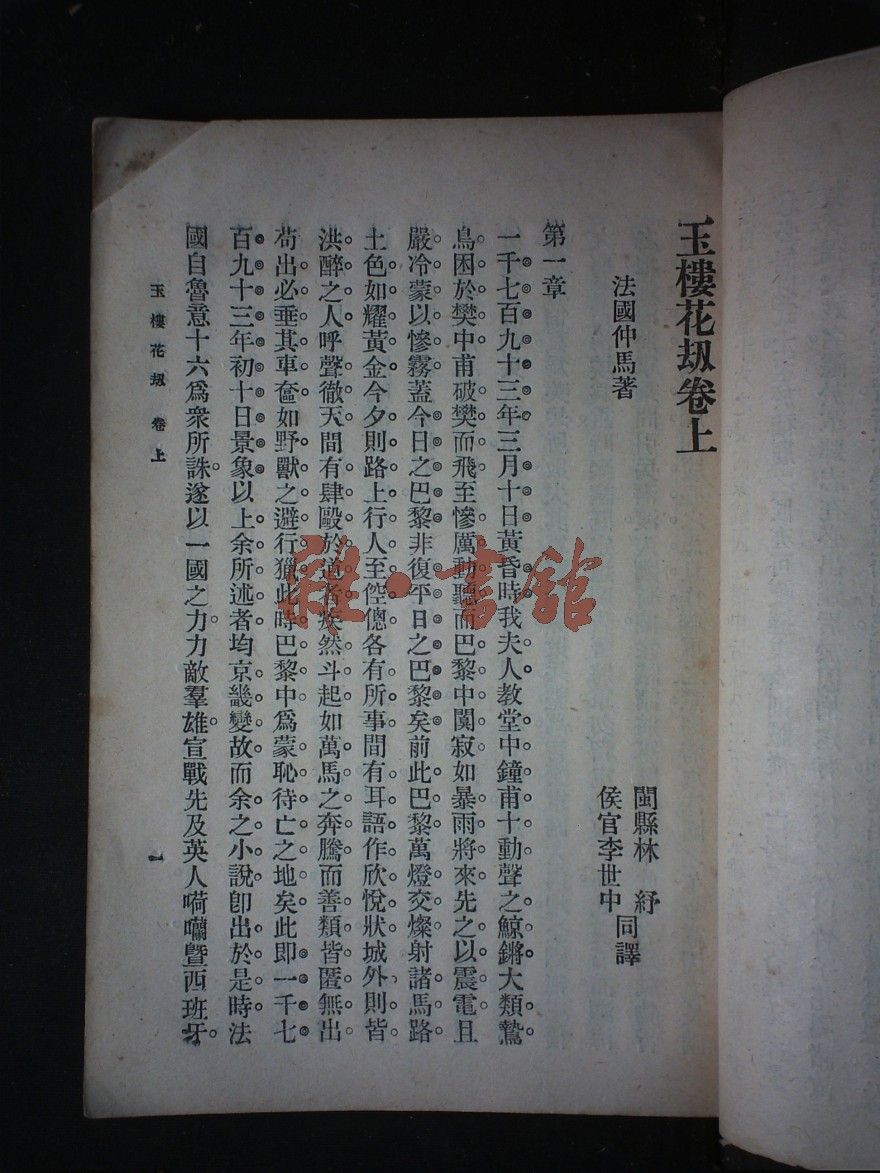 玉樓花刼卷上
法國仲馬著
閩縣林紓
侯官李世中
同譯
第一章
一千七百九十三年三月十日黃昏時我夫人教堂中鐘甫十動聲之鯨鏘大類鷙
鳥困於樊中甫破樊而飛至慘厲動聽而巴黎中闃寂如暴雨將來先之以震電且
嚴冷蒙以慘霧蓋今日之巴黎非復平日之巴黎矣前此巴黎萬燈交燦射諸馬路
土色如耀黃金今夕則路上行人至倥傯各有所事間有耳語作欣悅狀城外則皆
洪醉之人呼聲徹天間有肆毆於道者疾然斗起如萬馬之奔騰而善類皆匿無出
苟出必垂其車奩如野獸之避行獵此時巴黎中爲蒙恥待亡之地矣此即一千七
百九十三年初十日景象以上余所述者均京畿變故而余之小說卽出於是時法
國自魯意十六爲衆所誅遂以一國之力力敵羣雄宣戰先及英人嗬囒暨西班牙
玉樓花刼 卷上
一
雜·書館